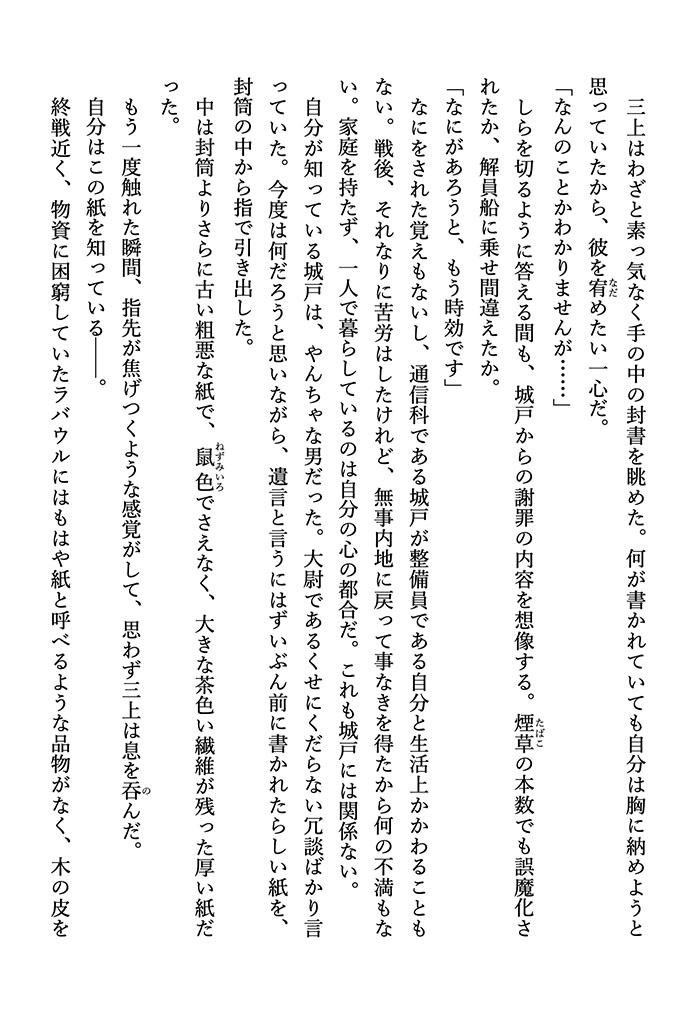 三上はわざと素っ気なく手の中の封書を眺めた。何が書かれていても自分は胸に納めようと
思っていたから、彼を宥めたい一心だ。
「なんのことかわかりませんが……」
しらを切るように答える間も、城戸からの謝罪の内容を想像する。煙草の本数でも誤魔化さ
れたか、解員船に乗せ間違えたか。
「なにがあろうと、もう時効です」
なにをされた覚えもないし、通信科である城戸が整備員である自分と生活上かかわることも
ない。戦後、それなりに苦労はしたけれど、無事内地に戻って事なきを得たから何の不満もな
い。家庭を持たず、一人で暮らしているのは自分の心の都合だ。これも城戸には関係ない。
自分が知っている城戸は、やんちゃな男だった。大尉であるくせにくだらない冗談ばかり言
っていた。今度は何だろうと思いながら、遺言と言うにはずいぶん前に書かれたらしい紙を、
封筒の中から指で引き出した。
中は封筒よりさらに古い粗悪な紙で、鼠色でさえなく、大きな茶色い繊維が残った厚い紙だ
った。
もう一度触れた瞬間、指先が焦げつくような感覚がして、思わず三上は息を呑んだ。
自分はこの紙を知っている――。
終戦近く、物資に困窮していたラバウルにはもはや紙と呼べるような品物がなく、木の皮を